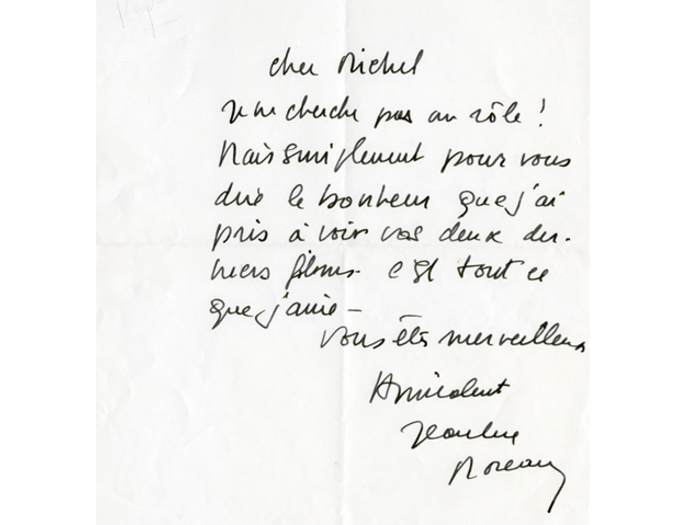 cher Michel
Je ne cherche pas un rôle !
Mais simplement pour vous
dire le bonheur que j'ai
pris à voir vos deux der-
niers films. c'est tout ce
que j'aime -
vous êtes merveilleux
Amicalement
Jeanne
Moreau